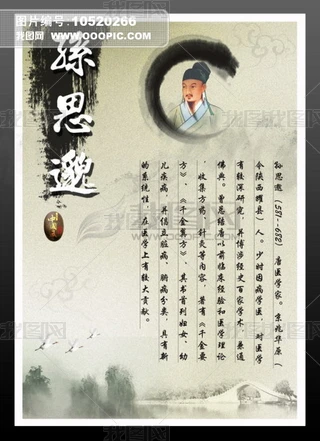 10520266
我图网 WWW.OOOPIC.COM
孫思邈
孙思邈 (581-682) 唐医学家。京兆华原（
今陕西耀县）人。少时因病学医，对医学
有较深研究，并博涉经史百家学术，兼通
佛典。曾总结唐以前临床经验和医学理论
，收集方药、针灸等内容，著有《千金要
方》、《千金翼方》。其书首列妇女、幼
儿疾病，并倡立脏病、腑病分类，具有新
的系统性，在医学上有较大贡献。